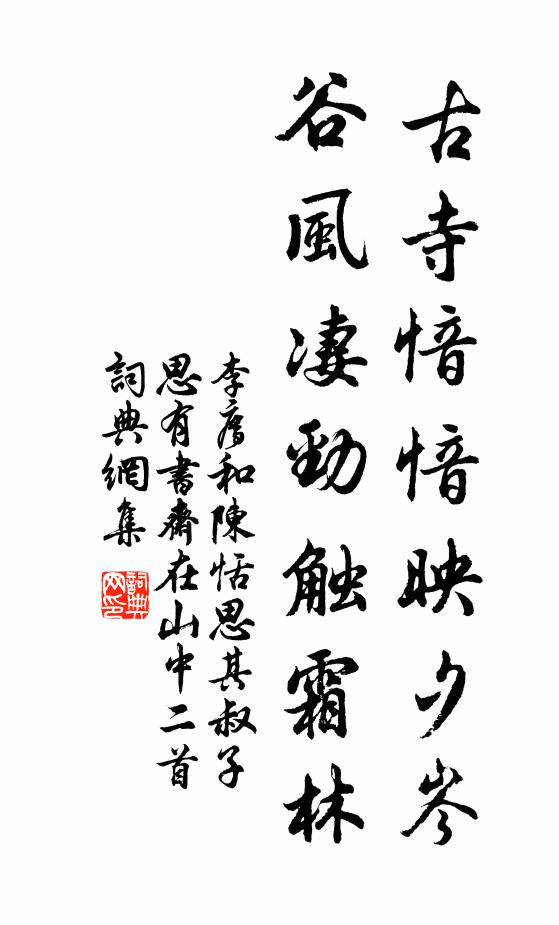 古寺愔愔映夕岑
谷風凄勁触霜林
李廌和陳恬思其叔子
思有書齋在山中二首
詞典網集
詞典网印